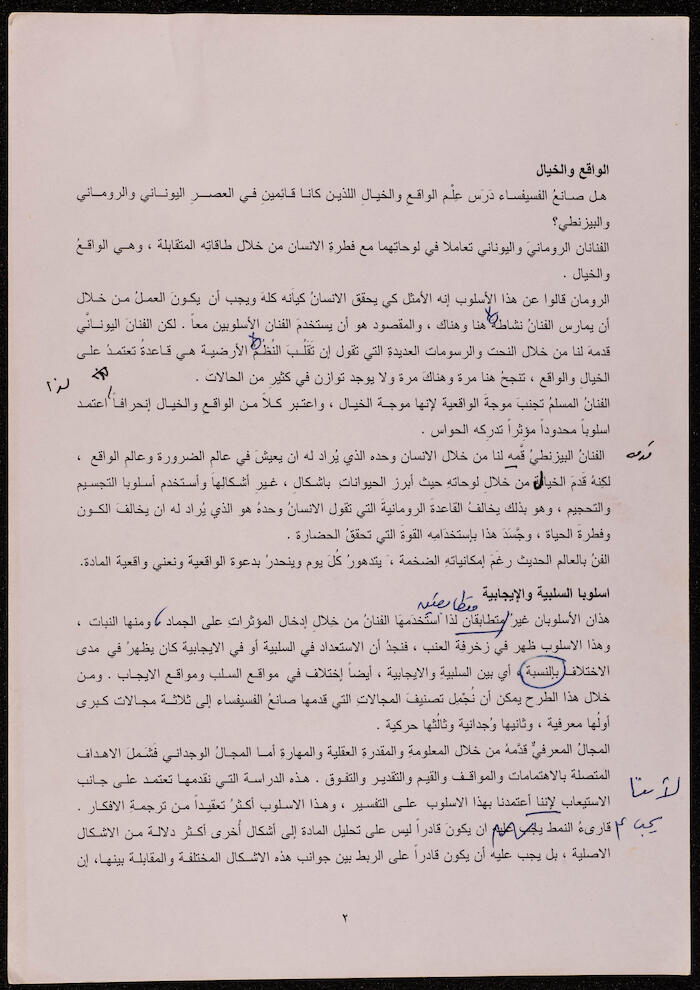 الواقع والخيال
هل صانعُ الفسيفساء دَرَس عِلْم الواقع والخيال اللذين كانا قائمين في العصر اليوناني والروماني
والبيزنطي؟
الفنانان الرومانيَ واليوناني تعاملا في لوحاتهما مع فطرةِ الانسان من خلال طاقاتِه المتقابلة ، وهي الواقعُ
والخيال .
الرومان قالوا عن هذا الأسلوب إنه الأمثل كي يحقق الانسانُ كيانَه كلهَ ويجب أن يكونَ العملُ من خلال
أن يمارس الفنانُ نشاطهُ هنا وهناك ، والمقصود هو أن يستخدمَ الفنان الأسلوبين معاً . لكن الفنانَ اليونانَّي
قدمهَ لنا من خلال النحت والرسومات العديدةِ التي تقول إن تَقَلُب النُظُم الأرضية هي قاعدةُ تعتمدُ على
الخيالِ والواقع ، تنجحُ هنا مرة وهناكَ مرة ولا يوجد توازن في كثيرٍ من الحالات .
لذا
الفنانُ المسلمُ تجنبَ موجةَ الواقعية لإنها موجة الخيال ، واعتبر كلاً من الواقع والخيال إنحرافاً اعتمد
اسلوباً محدوداً مؤثراً تدركه الحواس .
الفنانُ البيزنطيُ قَّمه لنا من خلال الانسان وحده الذي يُراد له ان يعيشَ في عالمِ الضرورة وعالم الواقع ،
قدمه
لكِنهُ قدمَ الخيال من خلالِ لوحاتهِ حيث أبرز الحيوانات بإشكالٍ ، غيرِ أشكالِها وأستخدم أسلوبا التجسيم
والتحجيم ، وهو بذلك يخالفُ القاعدة الرومانيةَ التي تقول الانسانُ وحدهُ هو الذي يُراد له ان يخالفَ الكون
وفطرة الحياة ، وجَسَّدَ هذا بإستخدَامِه القوةَ التي تحققُ الحضارة .
الفنُ بالعالم الحديث رغمَ إمكانياتِه الضخمة ، يتدهورُ كُلَ يوم وينحدرُ بدعوة الواقعية ونعني واقعية المادة.
اسلوبا السلبية والإيجابية
هذان الأسلوبان غيرُ متطابقان لذا استخدمَهَا الفنانُ من خلالِ إدخال المؤثراتِ على الجماد ، ومنها النبات ،
وهذا الاسلوب ظهر في زخرفِة العنب ، فنجدُ أن الاستعداد في السلبية أو في الايجابية كان يظهرُ في مدى
الاختلافِ بالنسبة ، أي بين السلبيةِ والايجابية ، أيضاً إختلاف في مواقع السلب ومواقع الايجاب . ومن
خلال هذا الطرح يمكن أن نُجْمِل تصنيفَ المجالات التي قدمها صانعُ الفسيفساء إلى ثلاثة مجالات كبرى
أولُها معرفية ، وثانيها وُجدانية وثالُثها حركية .
المجالُ المعرفيُّ قدَّمهُ من خلال المعلومةِ والمقدرة العقلية والمهارةِ أما المجالُ الوجداني فَشملَ الاهداف
المتصلة بالاهتمامات والمواقف والقيم والتقدير والتفوق . هذه الدراسة التي نقدمها تعتمد على جانب
الاستيعاب لإننا أعتمدنا بهذا الاسلوب على التفسير ، وهذا الاسلوب أكثرُ تعقيداً من ترجمةِ الافكار .
لأننا
قارىءُ النمط يجب عليه ان يكونَ قادراً ليس على تحليل المادة إلى أشكال أُخرى أكثر دلالة من الاشكال
يجب
الاصلية ، بل يجب عليهَ أن يكون قادراً على الربط بين جوانب هذه الاشكال المختلفة والمقابلة بينها، إن
٢